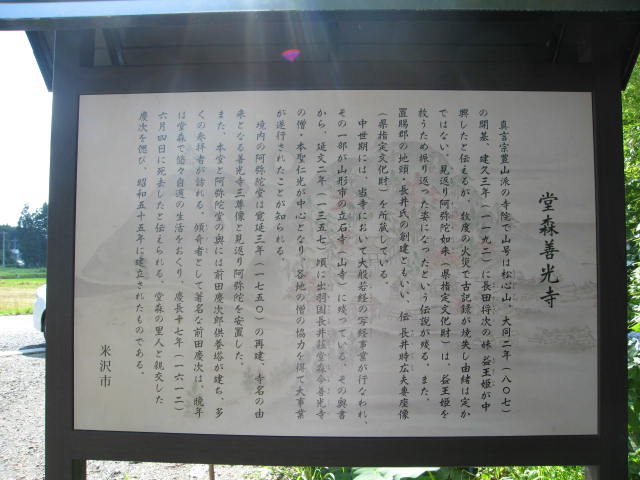 堂森善光寺
真言宗豊山派の寺院で山号は松心山。大同二年（八〇七）
の開基、建久三年（一一九二）に長田将次の妹 益王姫が中
興したと伝えるが、数度の火災で古記録が焼失し由緒は定か
ではない。見返り阿弥陀如来（県指定文化財）は、益王姫を
救うため振り返った姿になったという伝説が残る。また、
置賜郡の地頭・長井氏の創建ともいい、伝 長井時広夫妻座像
（県指定文化財）を所蔵している。
中世期には、当寺において大般若経の写経事業が行なわれ、
その一部が山形市の立石寺（山寺）に残っている。その奥書
から、延文二年（一三五七）頃に出羽国長井荘堂森今善光寺
の僧・本聖仁光が中心となり、各地の僧の協力を得て大事業
が遂行されたことが知られる。
境内の阿弥陀堂は寛延三年（一七五〇）の再建、寺名の由
来となる善光寺三尊像と見返り阿弥陀を安置した。
また、本堂と阿弥陀堂の奥には前田慶次郎供養塔が建ち、多
くの参拝者が訪れる。傾奇者として著名な前田慶次は、晩年
は堂森で悠々自適の生活をおくり、慶長十七年（一六一二）
六月四日に死去したと伝えられる。堂森の里人と親交した
慶次を偲び、昭和五十五年に建立されたものである。
米沢市